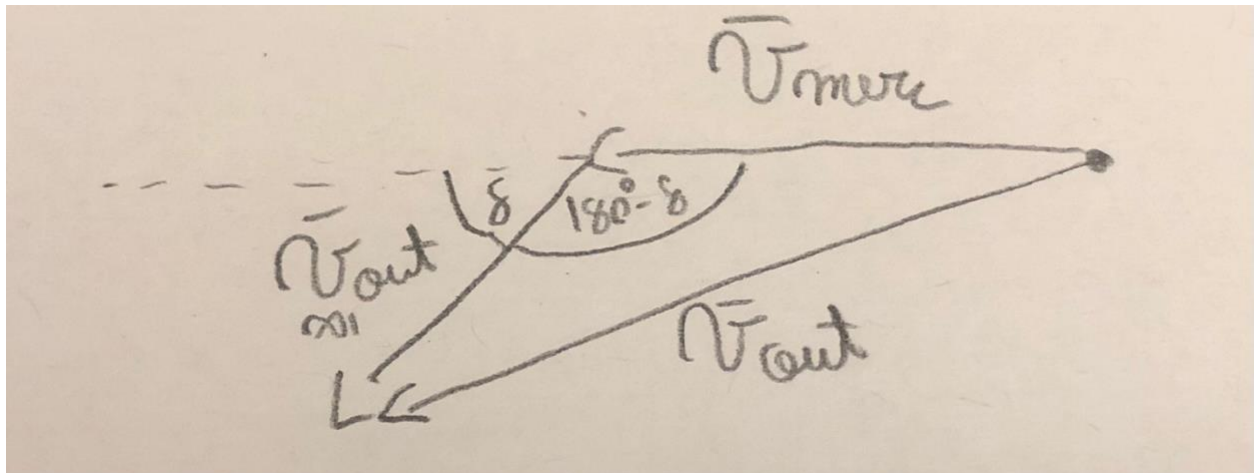 V̄merc
δ
180°-δ
V̄out
∞1
V̄out